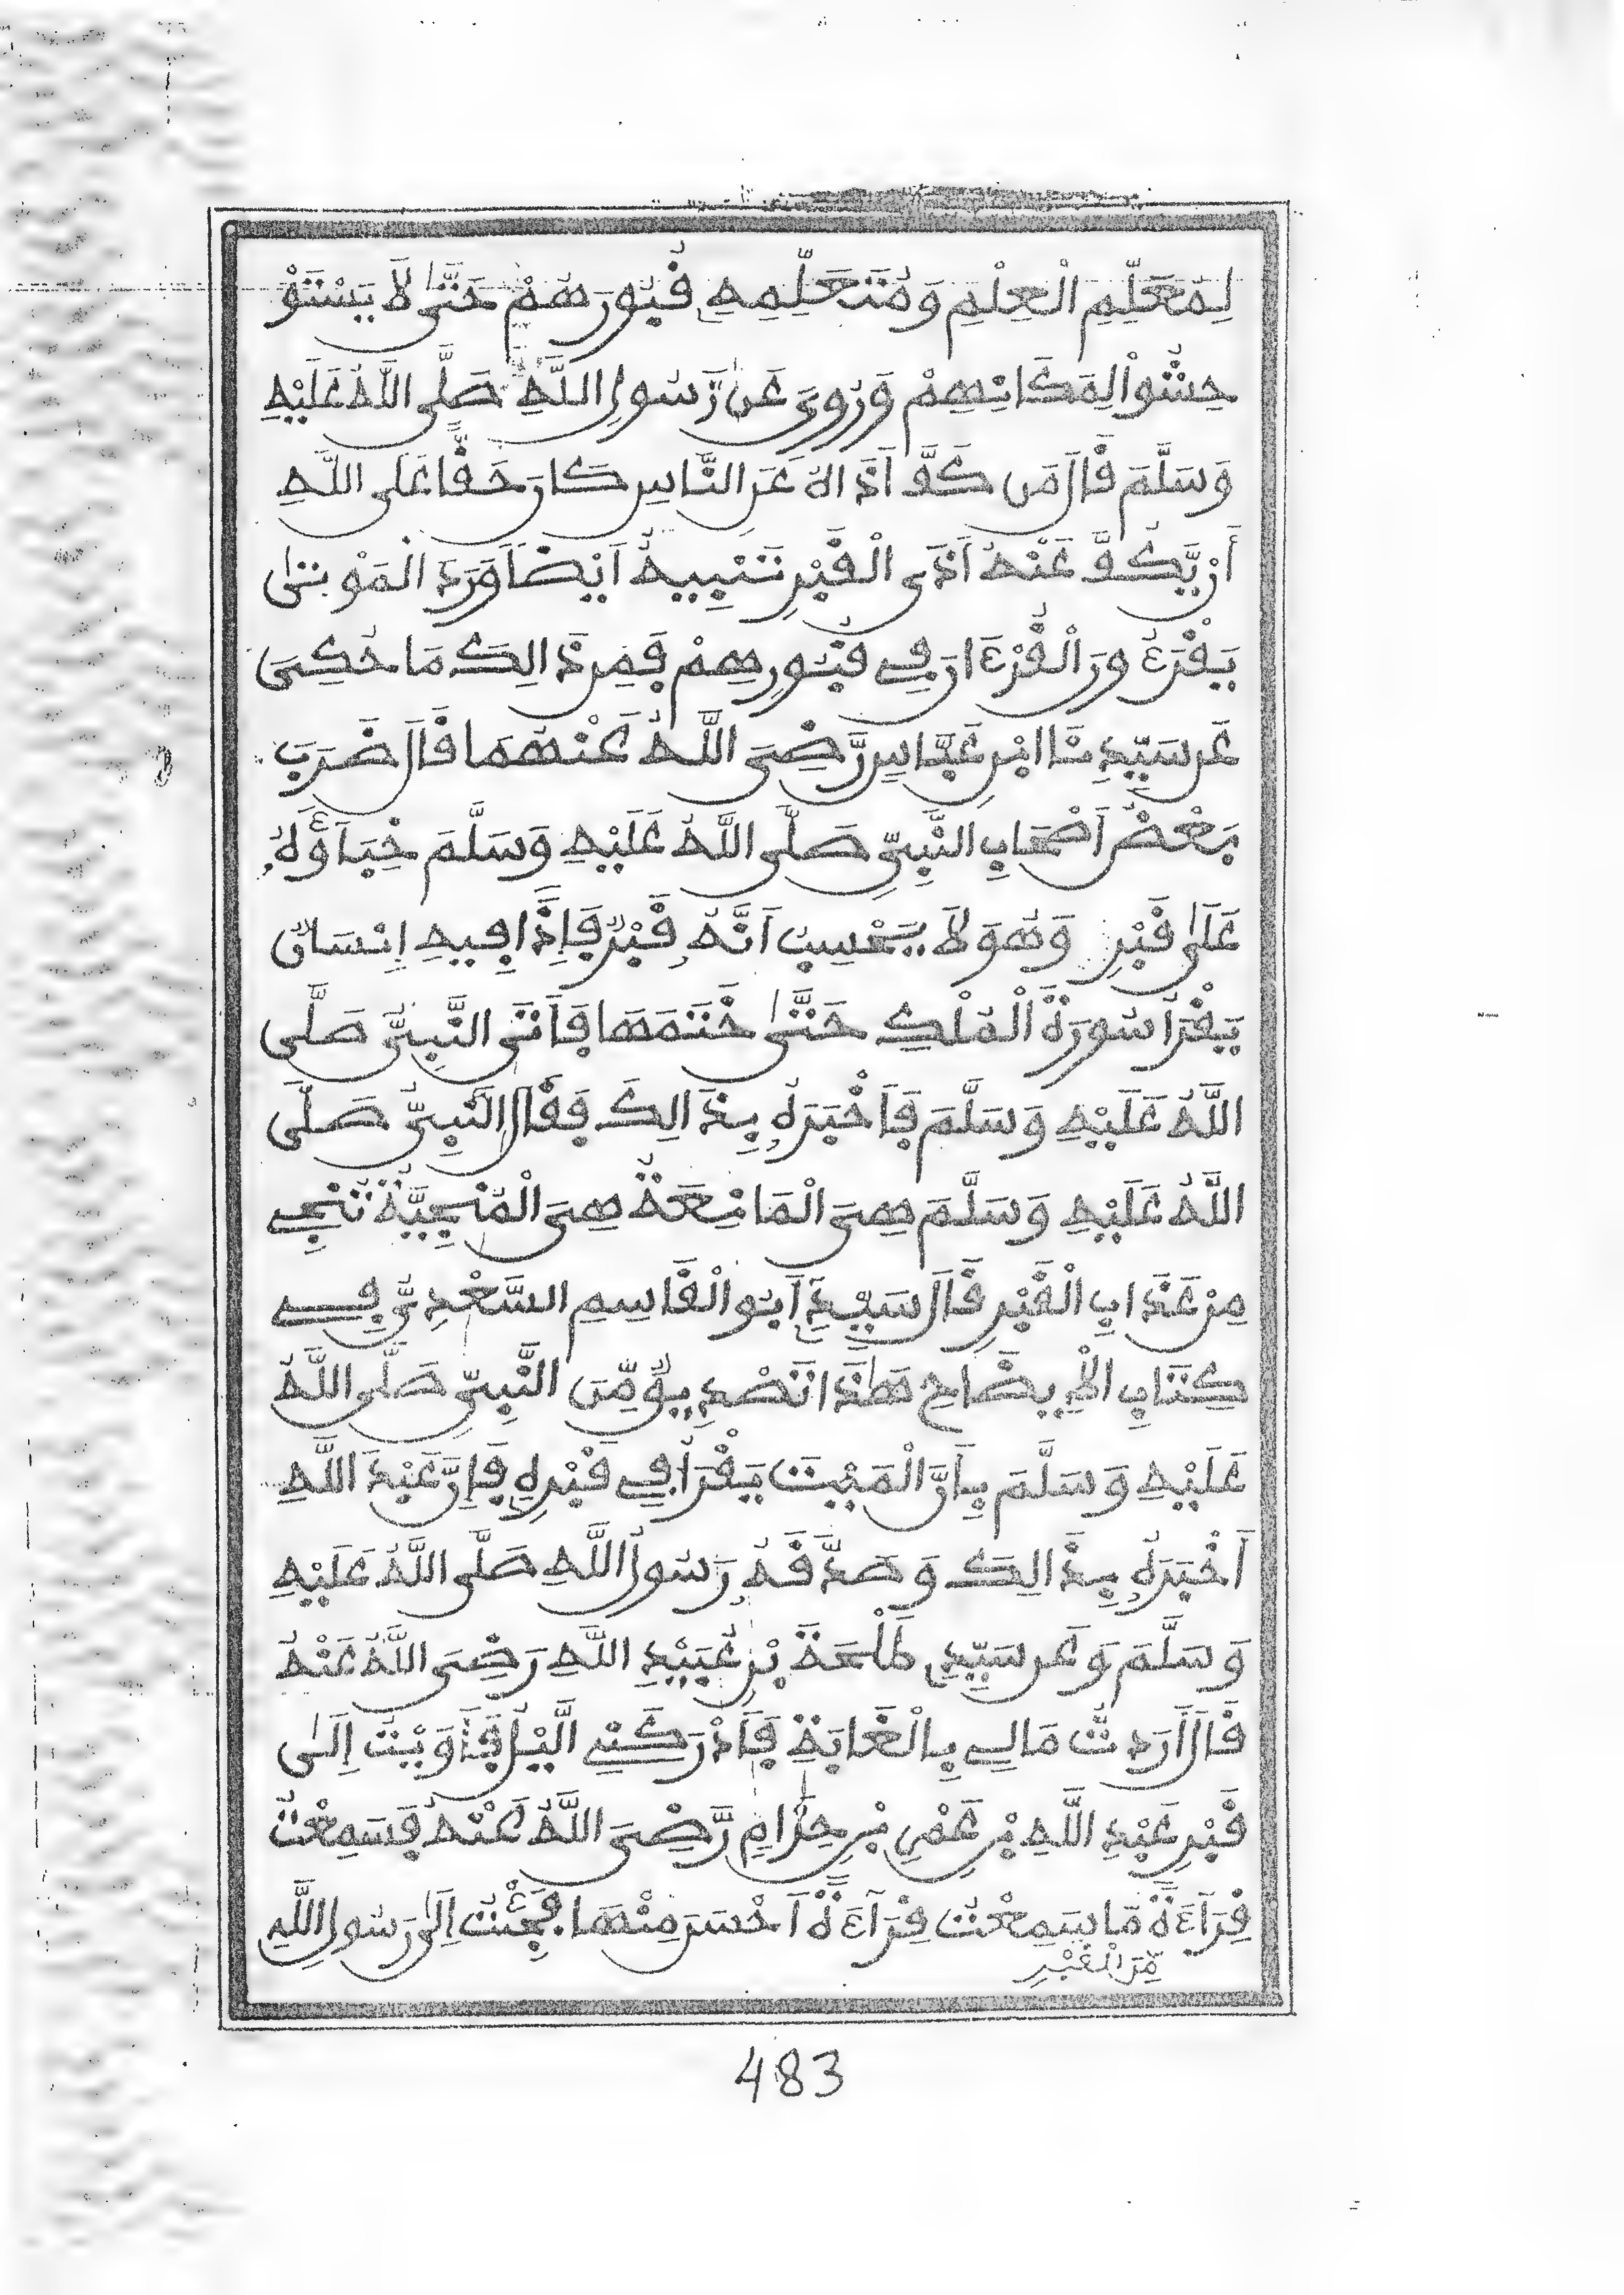 لِمُعَلِّمِ الْعِلْمِ وَمُتَعَلِّمِهِ قُبُورَهُمْ حَتَّىٰ لَا يَسْتَوْ
حِشُوا لِمَكَانِهِمْ وَرُوِيَ عَن رَّسُولِ اللَّهِ صَلَّى اللَّهُ عَلَيْهِ
وَسَلَّمَ قَالَ مَن كَفَّ أَذَاهُ عَنِ النَّاسِ كَانَ حَقًّا عَلَى اللَّهِ
أَنْ يَّكُفَّ عَنْهُ أَذَى الْقَبْرِ تَنْبِيهٌ أَيْضًا وَرَدَ الْمَوْتَىٰ
يَقْرَءُونَ الْقُرْءَانَ فِي قُبُورِهِمْ فَمِن ذَالِكَ مَا حُكِيَ
عَن سَيِّدِنَا ابْنِ عَبَّاسٍ رَّضِيَ اللَّهُ عَنْهُمَا قَالَ ضَرَبَ
بَعْضُ أَصْحَابِ النَّبِيِّ صَلَّى اللَّهُ عَلَيْهِ وَسَلَّمَ خِبَاءَهُ
عَلَىٰ قَبْرٍ وَهُوَ لَا يَحْسِبُ أَنَّهُ قَبْرٌ فَإِذَا فِيهِ إِنْسَانٌ
يَقْرَأُ سُورَةَ الْمُلْكِ حَتَّىٰ خَتَمَهَا فَأَتَى النَّبِيَّ صَلَّى
اللَّهُ عَلَيْهِ وَسَلَّمَ فَأَخْبَرَهُ بِذَالِكَ فَقَالَ النَّبِيُّ صَلَّى
اللَّهُ عَلَيْهِ وَسَلَّمَ هِيَ الْمَانِعَةُ هِيَ الْمُنْجِيَّةُ تُنْجِي
مِنْ عَذَابِ الْقَبْرِ قَالَ سَيِّدِي أَبُو الْقَاسِمِ السَّعْدِيُّ فِي
كِتَابِ الْإِيضَاحِ هَٰذَا تَصْدِيقٌ مِّنَ النَّبِيِّ صَلَّى اللَّهُ
عَلَيْهِ وَسَلَّمَ بِأَنَّ الْمَيِّتَ يَقْرَأُ فِي قَبْرِهِ فَإِنَّ عَبْدَ اللَّهِ
أَخْبَرَهُ بِذَالِكَ وَصَدَّقَهُ رَسُولُ اللَّهِ صَلَّى اللَّهُ عَلَيْهِ
وَسَلَّمَ وَعَن سَيِّدِي طَلْحَةَ بْنِ عُبَيْدِ اللَّهِ رَضِيَ اللَّهُ عَنْهُ
قَالَ أَرَدتُّ مَالِي بِالْغَابَةِ فَأَدْرَكَنِي الَّيْلُ فَأَوَيْتُ إِلَىٰ
قَبْرِ عَبْدِ اللَّهِ بْنِ عَمْرِ بْنِ حِزَامٍ رَّضِيَ اللَّهُ عَنْهُ فَسَمِعْتُ
قِرَآءَةً مَّا سَمِعْتُ قِرَآءَةً أَحْسَنَ مِنْهَا فَجِئْتُ إِلَىٰ رَسُولِ اللَّهِ
مِّنَ الْقَبْرِ
483